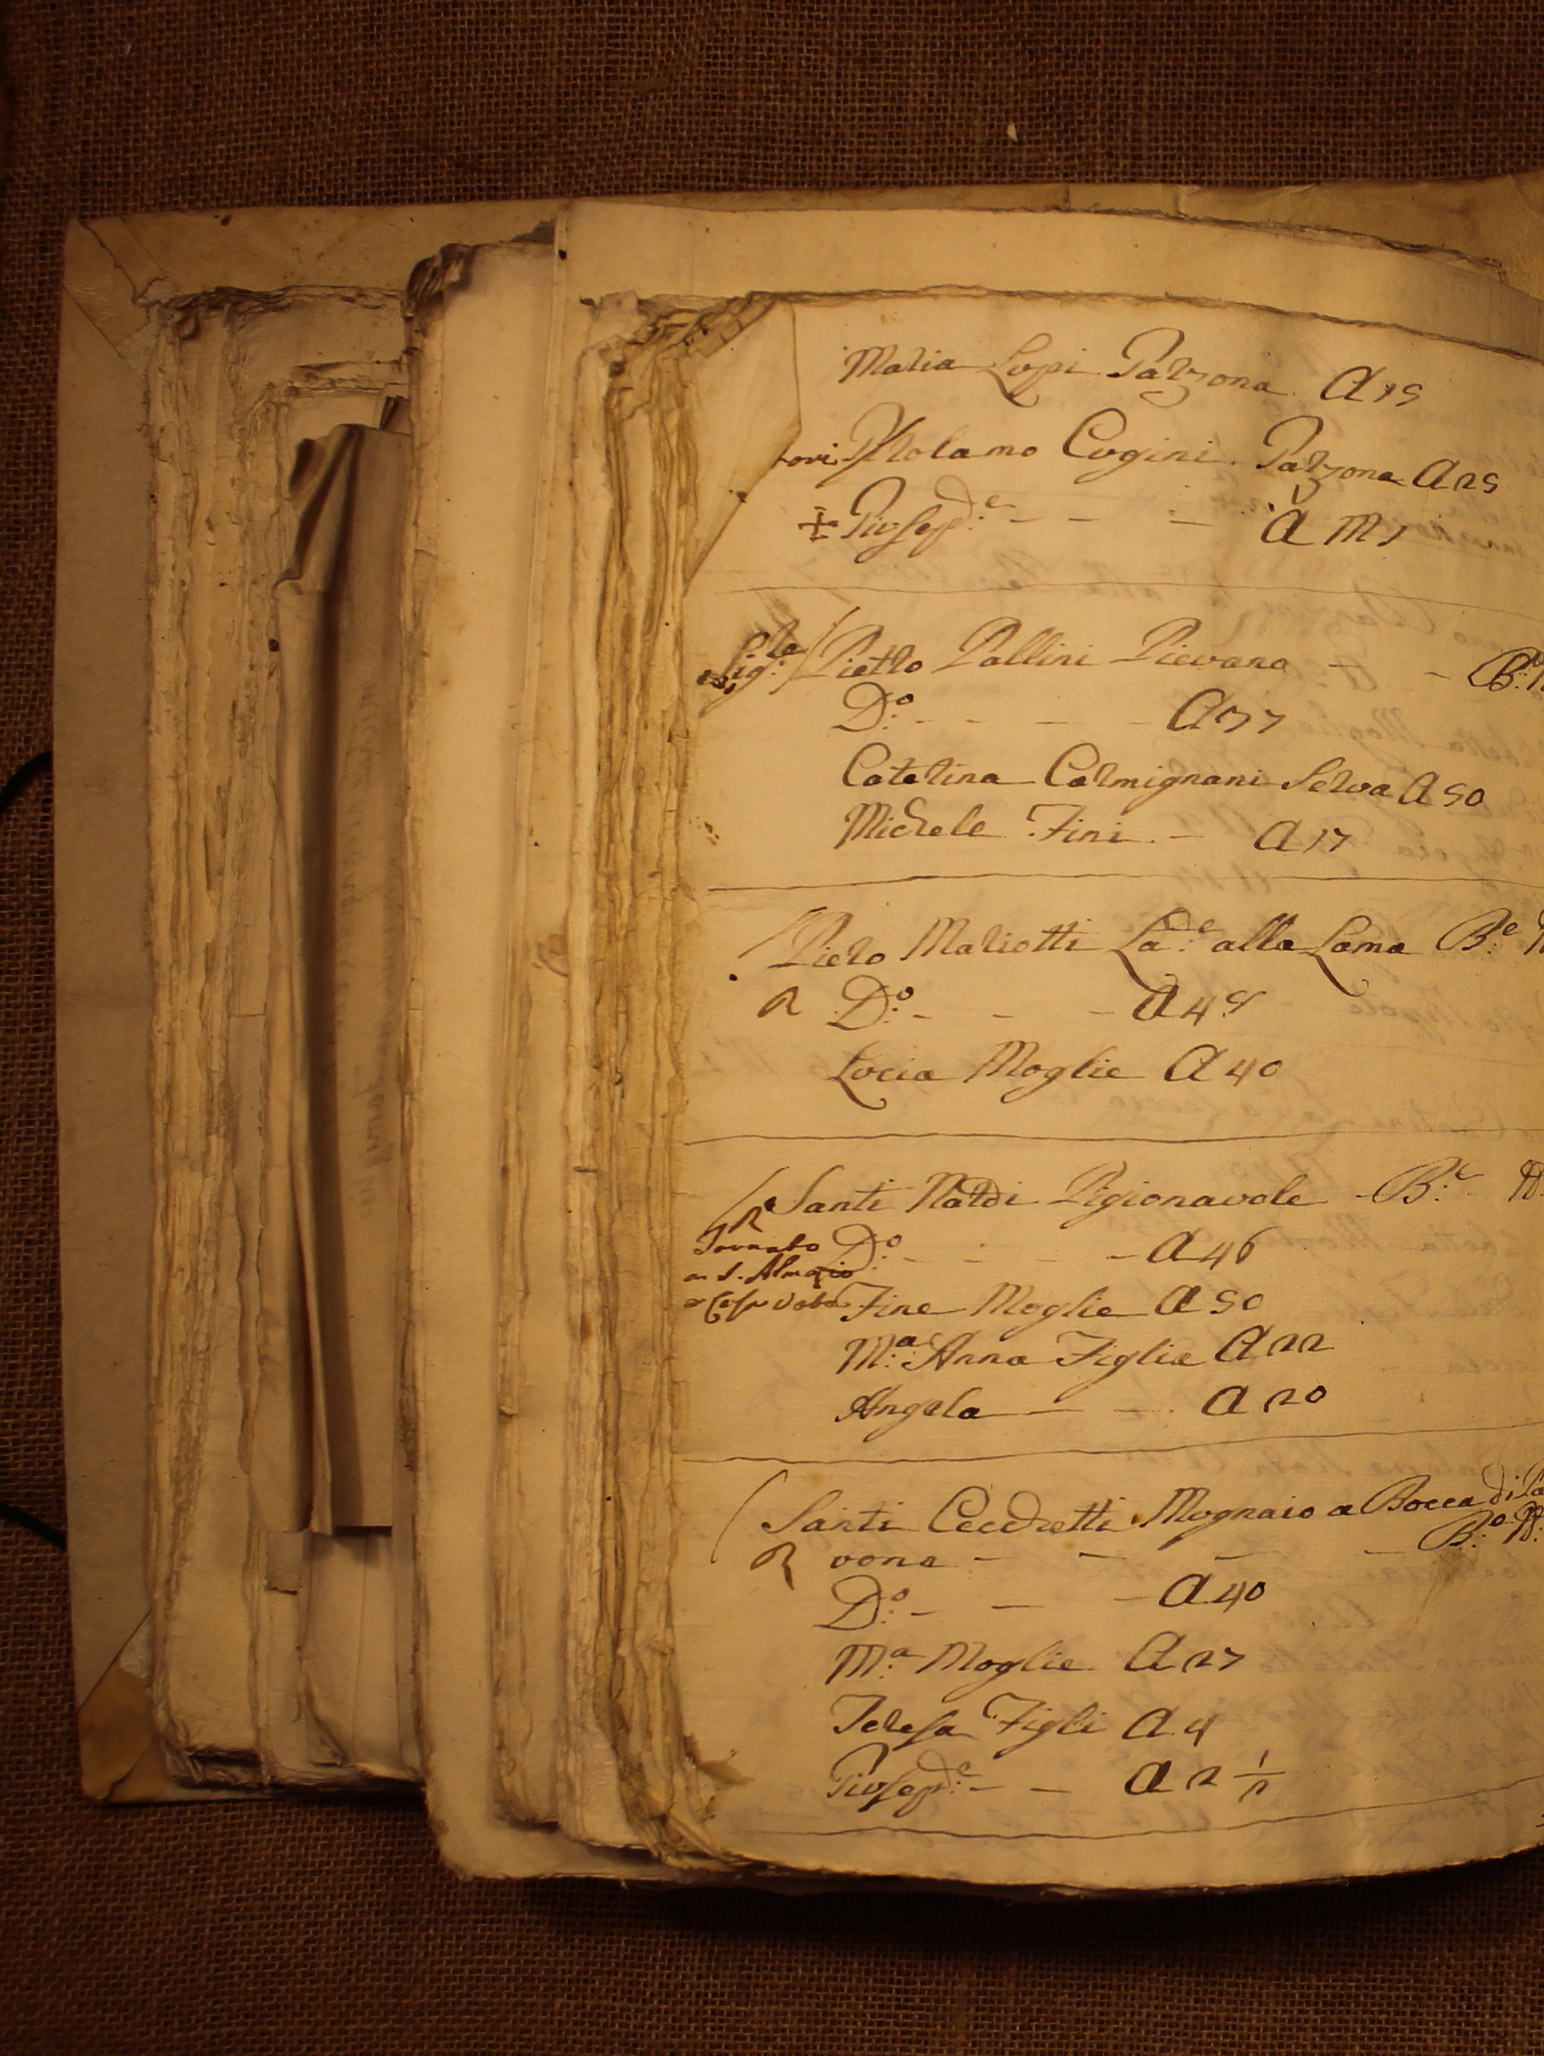 Maria Lupi Garzona A 15
Girolamo Cugini Garzone A 25
+ Giusep.e - - - A M 1
Pietro Pallini Pievano - - B.
D.o - - - A 77
Caterina Carmignani Serva A 50
Michele Fini - A 17
Piero Mariotti La.de alla Lama B.e
R D.o - - - A 48
Lucia Moglie A 40
Santi Nardi Pigionavole - B.e N.
R
Tornato D.o - - - - A 46
a S. Fine Moglie A 50
M.a Anna Figlia A 22
Angela - - A 20
Santi Cecchetti Mugnaio a Bocca di
R vona - - - - B.e N.
D.o - - - A 40
M.a Moglie A 27
Teresa Figli A 4
Giusep.e - - A 2 1/2